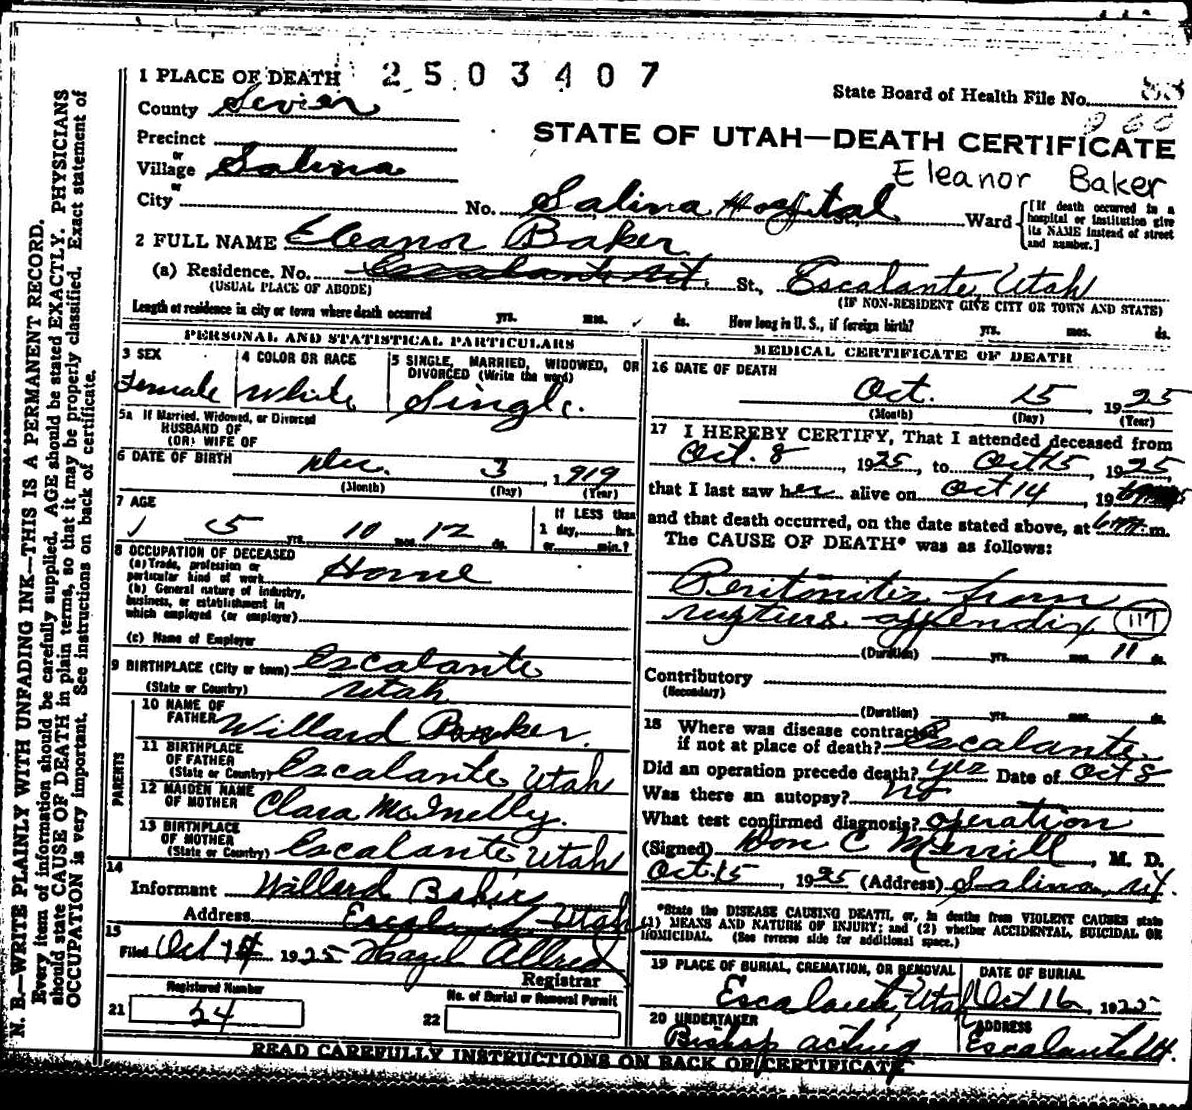 1 PLACE OF DEATH 2 5 0 3 4 0 7
State Board of Health File No.
County Sevier
STATE OF UTAH—DEATH CERTIFICATE
Precinct
or
Village Salina
Eleanor Baker
or
City No. Salina Hospital St., Ward
[If death occurred in a hospital or institution give its NAME instead of street and number.]
2 FULL NAME Eleanor Baker
(a) Residence. No. Escalante Ut. St., Escalante, Utah
(USUAL PLACE OF ABODE) (IF NON-RESIDENT GIVE CITY OR TOWN AND STATE)
Length of residence in city or town where death occurred yrs. mos. ds. How long in U. S., if foreign birth? yrs. mos. ds.
PERSONAL AND STATISTICAL PARTICULARS
3 SEX Female
4 COLOR OR RACE White
5 SINGLE, MARRIED, WIDOWED, OR DIVORCED (Write the word) Single.
5a If Married, Widowed, or Divorced
HUSBAND OF
(OR) WIFE OF
6 DATE OF BIRTH Dec. 3, 1919
(Month) (Day) (Year)
7 AGE
5 yrs. 10 mos. 12 ds.
If LESS than 1 day, hrs. or min.?
8 OCCUPATION OF DECEASED
(a) Trade, profession or particular kind of work Home
(b) General nature of industry, business, or establishment in which employed (or employer)
(c) Name of Employer
9 BIRTHPLACE (City or town) Escalante
(State or Country) Utah
PARENTS
10 NAME OF FATHER Willard Baker.
11 BIRTHPLACE OF FATHER (State or Country) Escalante Utah
12 MAIDEN NAME OF MOTHER Clara McInelly.
13 BIRTHPLACE OF MOTHER (State or Country) Escalante Utah
14
Informant Willard Baker
Address Escalante Utah
15
Filed Oct 1925 Hazel Allred
Registrar
Registered Number
21 24
No. of Burial or Removal Permit
22
MEDICAL CERTIFICATE OF DEATH
16 DATE OF DEATH
Oct. 15, 1925
(Month) (Day) (Year)
17 I HEREBY CERTIFY, That I attended deceased from
Oct. 8, 1925, to Oct 15, 1925,
that I last saw her alive on Oct 14, 19
and that death occurred, on the date stated above, at m.
The CAUSE OF DEATH* was as follows:
Peritonitis from
rupture appendix 117
(Duration) yrs. mos. 11 ds.
Contributory
(Secondary)
(Duration) yrs. mos. ds.
18 Where was disease contracted
if not at place of death? Escalante
Did an operation precede death? yes Date of Oct 8
Was there an autopsy? no
What test confirmed diagnosis? operation
(Signed) Don C Merrill, M. D.
Oct. 15, 1925 (Address) Salina, Ut.
*State the DISEASE CAUSING DEATH, or, in deaths from VIOLENT CAUSES state (1) MEANS AND NATURE OF INJURY; and (2) whether ACCIDENTAL, SUICIDAL OR HOMICIDAL. (See reverse side for additional space.)
19 PLACE OF BURIAL, CREMATION, OR REMOVAL DATE OF BURIAL
Escalante, Utah Oct 16, 1925
20 UNDERTAKER ADDRESS
Bishop acting Escalante Ut.
READ CAREFULLY INSTRUCTIONS ON BACK OF CERTIFICATE
N. B.—WRITE PLAINLY WITH UNFADING INK—THIS IS A PERMANENT RECORD.
Every item of information should be carefully supplied. AGE should be stated EXACTLY. PHYSICIANS
should state CAUSE OF DEATH in plain terms, so that it may be properly classified. Exact statement of
OCCUPATION is very important. See instructions on back of certificate.